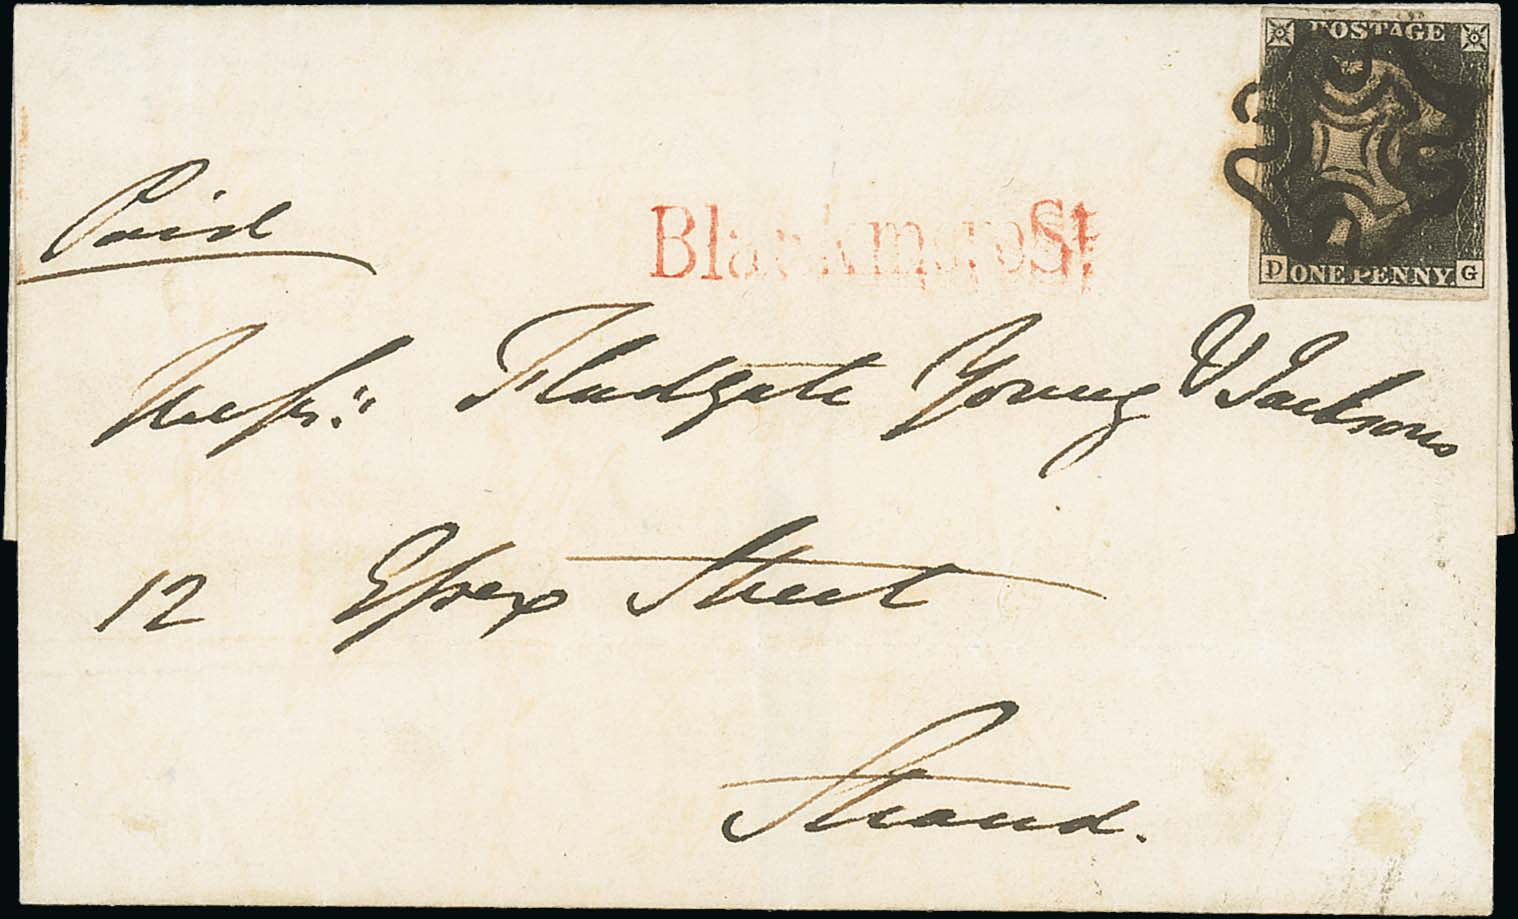 POSTAGE
D ONE PENNY. G
Paid
Blackmore St
Messrs: Fladgate Young & Jacksons
12 Essex Street
Strand.